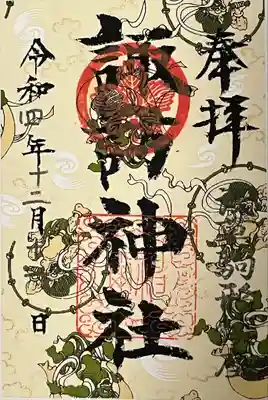 奉拝
駒形
諏訪神社
令和四年十二月 日